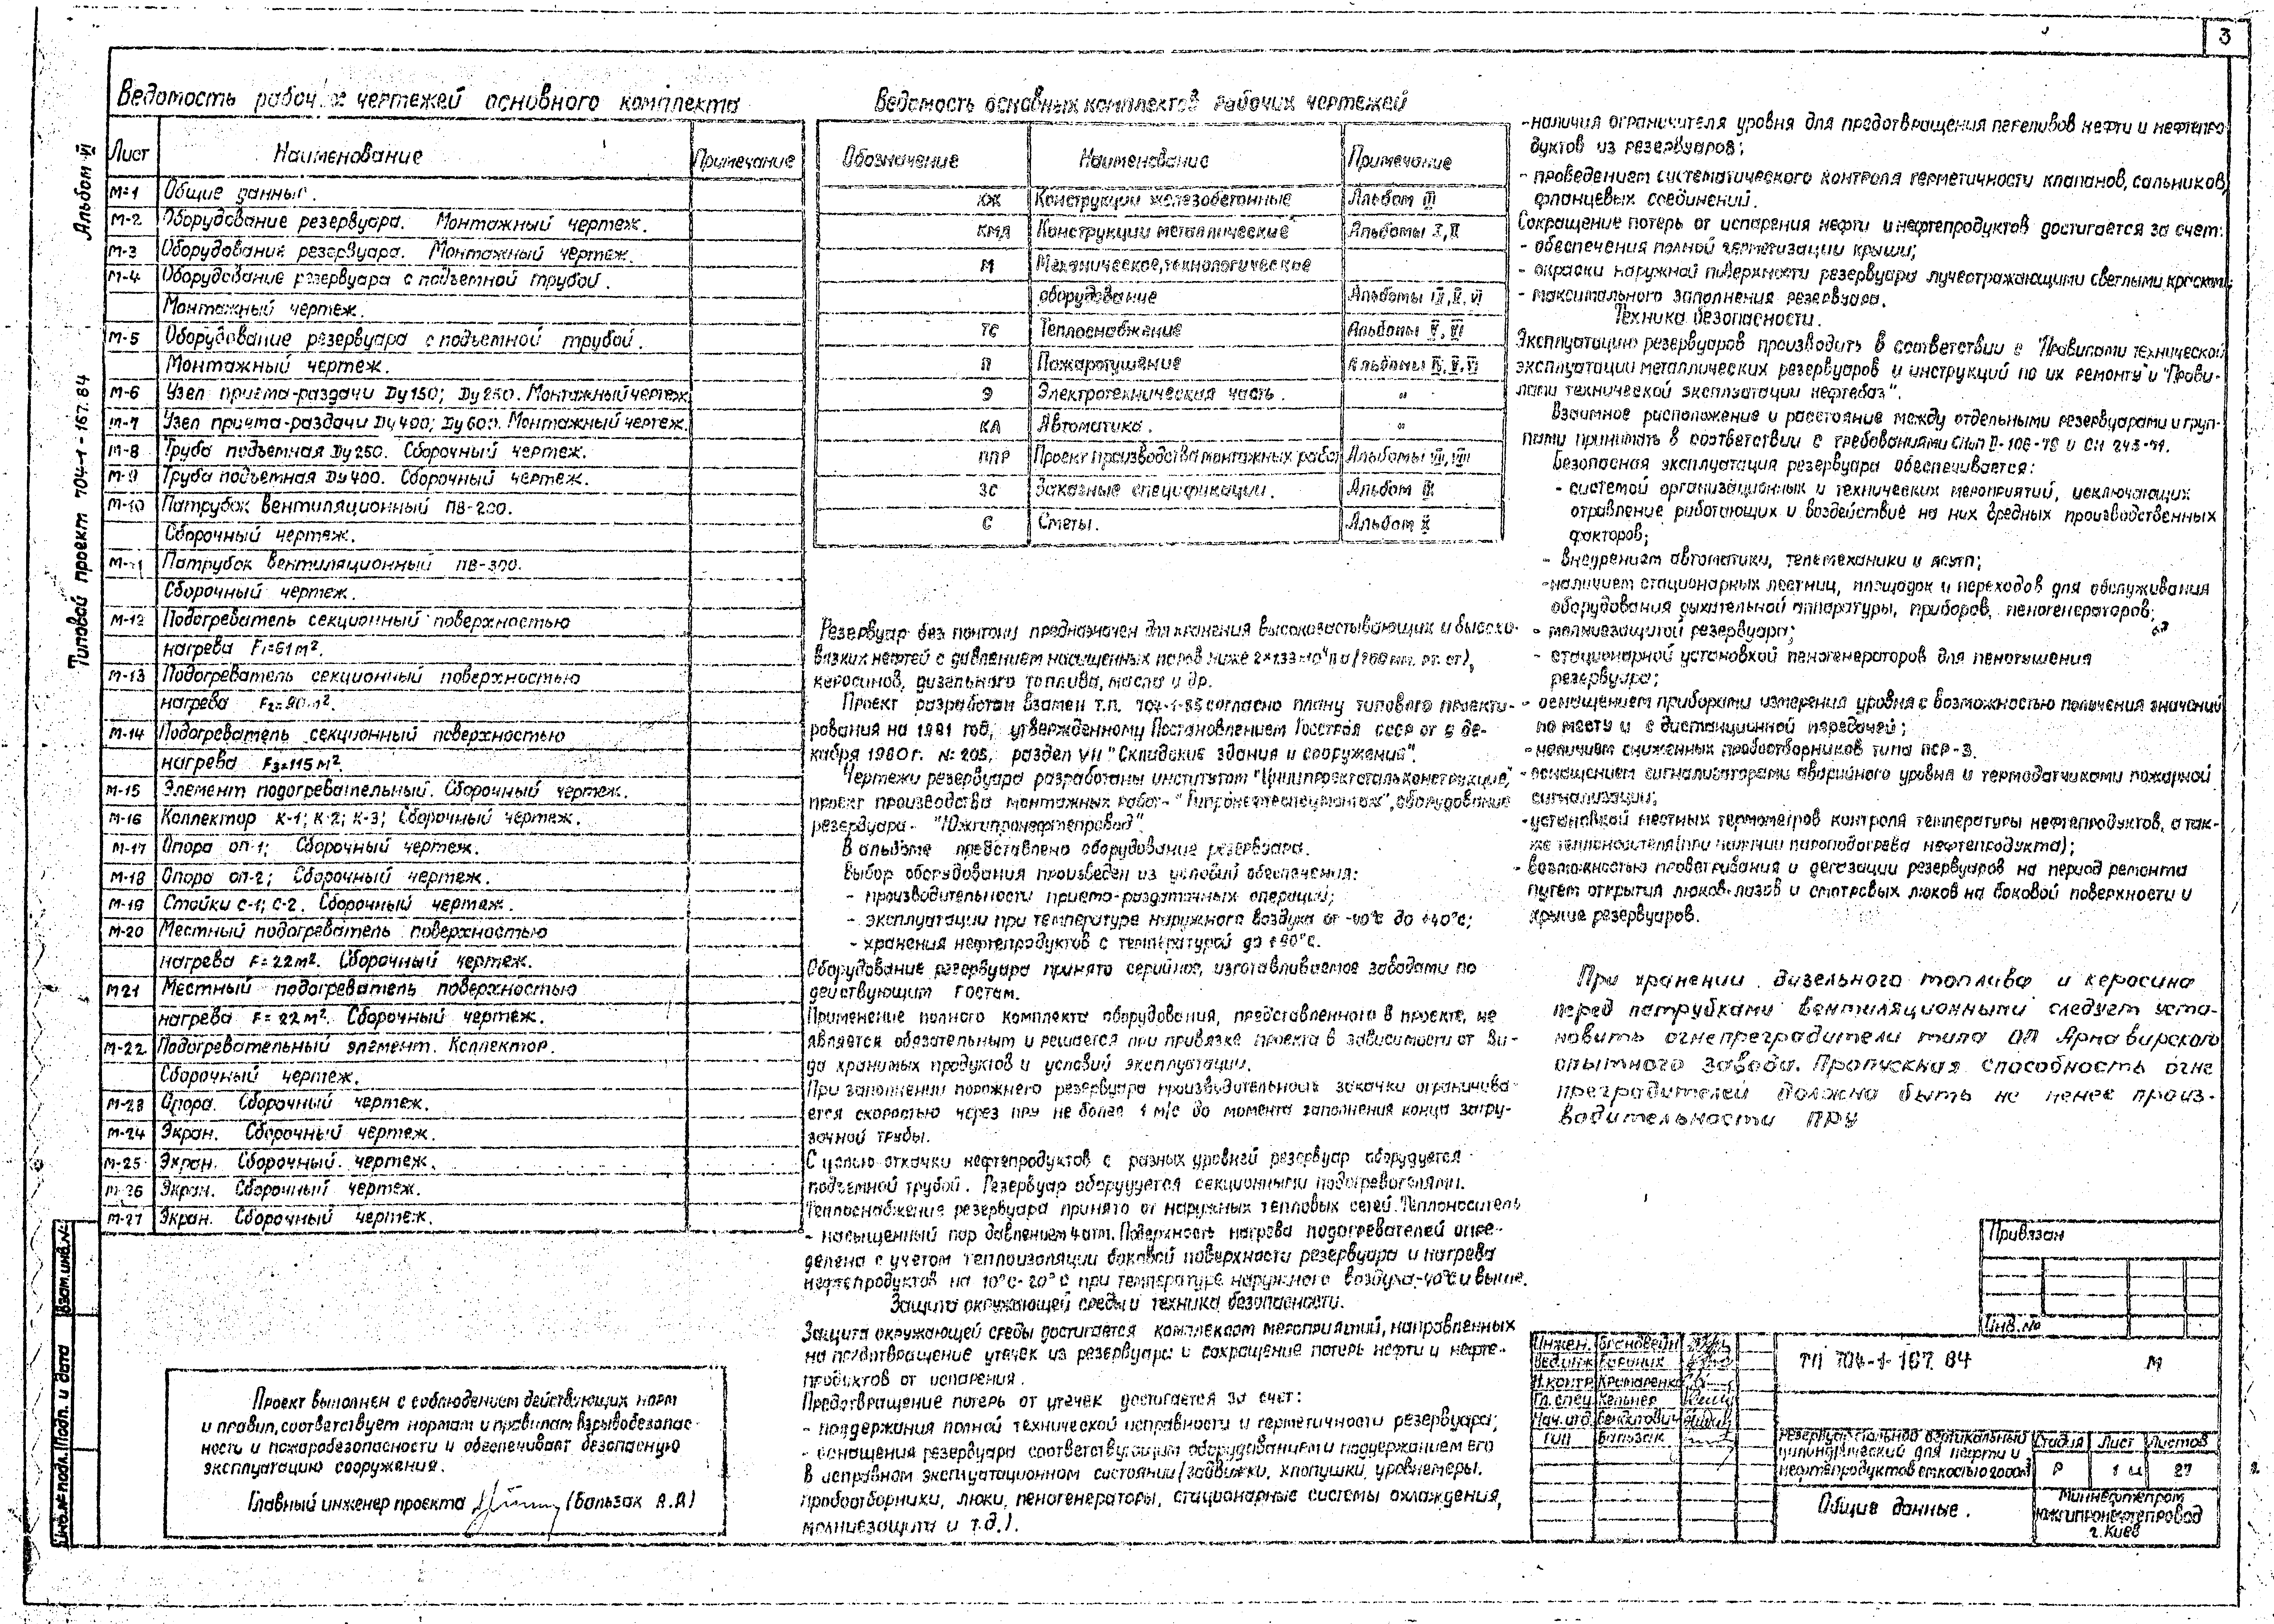 3
Альбом VI
Типовой проект 704-1-167.84
Ведомость рабочих чертежей основного комплекта
Лист Наименование Примечание
М-1 Общие данные.
М-2 Оборудование резервуара. Монтажный чертеж.
М-3 Оборудование резервуара. Монтажный чертеж.
М-4 Оборудование резервуара с подъемной трубой.
Монтажный чертеж.
М-5 Оборудование резервуара с подъемной трубой.
Монтажный чертеж.
М-6 Узел приема-раздачи Ду 150; Ду 250. Монтажный чертеж
М-7 Узел приема-раздачи Ду 400; Ду 600. Монтажный чертеж.
М-8 Труба подъемная Ду 250. Сборочный чертеж.
М-9 Труба подъемная Ду 400. Сборочный чертеж.
М-10 Патрубок вентиляционный ПВ-200.
Сборочный чертеж.
М-11 Патрубок вентиляционный ПВ-300.
Сборочный чертеж.
М-12 Подогреватель секционный поверхностью
нагрева F₁=61м².
М-13 Подогреватель секционный поверхностью
нагрева F₂=90м².
М-14 Подогреватель секционный поверхностью
нагрева F₃=115м².
М-15 Элемент подогревательный. Сборочный чертеж.
М-16 Коллектор К-1; К-2; К-3; Сборочный чертеж.
М-17 Опора ОП-1; Сборочный чертеж.
М-18 Опора ОП-2; Сборочный чертеж.
М-19 Стойки С-1; С-2. Сборочный чертеж.
М-20 Местный подогреватель поверхностью
нагрева F=22м². Сборочный чертеж.
М21 Местный подогреватель поверхностью
нагрева F=22м². Сборочный чертеж.
М-22 Подогревательный элемент. Коллектор.
Сборочный чертеж.
М-23 Опора. Сборочный чертеж.
М-24 Экран. Сборочный чертеж.
М-25 Экран. Сборочный чертеж.
М-26 Экран. Сборочный чертеж.
М-27 Экран. Сборочный чертеж.
Проект выполнен с соблюдением действующих норм
и правил, соответствует нормам и правилам взрывобезопас-
ности и пожаробезопасности и обеспечивает безопасную
эксплуатацию сооружения.
Главный инженер проекта (Бальзак А.А)
Ведомость основных комплектов рабочих чертежей
Обозначение Наименование Примечание
КЖ Конструкции железобетонные Альбом III
КМД Конструкции металлические Альбомы I, II
М Механическое, технологическое
оборудование Альбомы
ТС Теплоснабжение Альбомы V, VI
П Пожаротушение Альбомы IV, V, VI
Э Электротехническая часть. "
КА Автоматика. "
ППР Проект производства монтажных работ Альбомы VII, VIII
ЗС Заказные спецификации. Альбом
С Сметы. Альбом X
Резервуар без понтона предназначен для хранения высокозастывающих и высоко-
вязких нефтей с давлением насыщенных паров ниже
керосинов, дизельного топлива, масла и др.
Проект разработан взамен т.п. 704-1-55 согласно плану типового проекти-
рования на 1981 год, утвержденному Постановлением Госстроя СССР от 5 де-
кабря 1980г. № 205, раздел VII "Складские здания и сооружения".
Чертежи резервуара разработаны институтом "Цниипроектстальконструкция",
проект производства монтажных работ - "Гипронефтеспецмонтаж", оборудование
резервуара - "Южгипронефтепровод".
В альбоме представлено оборудование резервуара.
Выбор оборудования произведен из условий обеспечения:
- производительности приемо-раздаточных операций;
- эксплуатации при температуре наружного воздуха от -40°С до +40°С;
- хранения нефтепродуктов с температурой до +90°С.
Оборудование резервуара принято серийное, изготавливаемое заводами по
действующим ГОСТам.
Применение полного комплекта оборудования, представленного в проекте, не
является обязательным и решается при привязке проекта в зависимости от ви-
да хранимых продуктов и условий эксплуатации.
При заполнении порожнего резервуара производительность закачки ограничива-
ется скоростью через ПРУ не более 1 м/с до момента заполнения конца загру-
зочной трубы.
С целью откачки нефтепродуктов с разных уровней резервуар оборудуется
подъемной трубой. Резервуар оборудуется секционными подогревателями.
Теплоснабжение резервуара принято от наружных тепловых сетей. Теплоноситель
- насыщенный пар давлением 4 атм. Поверхность нагрева подогревателей опре-
делена с учетом теплоизоляции боковой поверхности резервуара и нагрева
нефтепродуктов на 10°С-20°С при температуре наружного воздуха -40°С и выше.
Защита окружающей среды и техника безопасности.
Защита окружающей среды достигается комплексом мероприятий, направленных
на предотвращение утечек из резервуара и сокращение потерь нефти и нефте-
продуктов от испарения.
Предотвращение потерь от утечек достигается за счет:
- поддержания полной технической исправности и герметичности резервуара;
- оснащения резервуара соответствующим оборудованием и поддержанием его
в исправном эксплуатационном состоянии (задвижки, хлопушки, уровнемеры,
пробоотборники, люки, пеногенераторы, стационарные системы охлаждения,
молниезащита и т.д.).
- наличия ограничителя уровня для предотвращения переливов нефти и нефтепро
дуктов из резервуаров;
- проведением систематического контроля герметичности клапанов, сальников,
фланцевых соединений.
Сокращение потерь от испарения нефти и нефтепродуктов достигается за счет:
- обеспечения полной герметизации крыши;
- окраски наружной поверхности резервуара лучеотражающими светлыми красками;
- максимального заполнения резервуара.
Техника безопасности.
Эксплуатацию резервуаров производить в соответствии с "Правилами технической
эксплуатации металлических резервуаров и инструкций по их ремонту" и "Прави-
лами технической эксплуатации нефтебаз".
Взаимное расположение и расстояние между отдельными резервуарами и груп-
пами принимать в соответствии с требованиями СНиП II-106-79 и СН 245-71.
Безопасная эксплуатация резервуара обеспечивается:
- системой организационных и технических мероприятий, исключающих
отравление работающих и воздействие на них вредных производственных
факторов;
- внедрением автоматики, телемеханики и АСУТП;
- наличием стационарных лестниц, площадок и переходов для обслуживания
оборудования дыхательной аппаратуры, приборов, пеногенераторов;
- молниезащитой резервуара;
- стационарной установкой пеногенераторов для пенотушения
резервуара;
- оснащением приборами измерения уровня с возможностью получения значений
по месту и с дистанционной передачей;
- наличием сниженных пробоотборников типа ПСР-3.
- оснащением сигнализаторами аварийного уровня и термодатчиками пожарной
сигнализации;
- установкой местных термометров контроля температуры нефтепродуктов, а так-
же теплоносителя (при наличии пароподогрева нефтепродукта);
- возможностью проветривания и дегазации резервуаров на период ремонта
путем открытия люков-лазов и смотровых люков на боковой поверхности и
крыше резервуаров.
При хранении дизельного топлива и керосина
перед патрубками вентиляционными следует уста-
новить огнепреградители типа ОП Армавирского
опытного завода. Пропускная способность огне
преградителей должна быть не менее произ-
водительности ПРУ
Привязан
Инв.№
Инжен.
Вед.инж.
Н.контр. Крамаренко
Гл.спец. Кельнер
Нач.отд. Бендитович
ГИП Бальзак
ТП 704-1-167.84 М
Резервуар стальной вертикальный
цилиндрический для нефти и
нефтепродуктов емкостью
Стадия Лист Листов
Р 1 27
Общие данные.
Миннефтепром
Южгипронефтепровод
г. Киев
Взам.инв.№
Подп. и дата
Инв.№ подл.